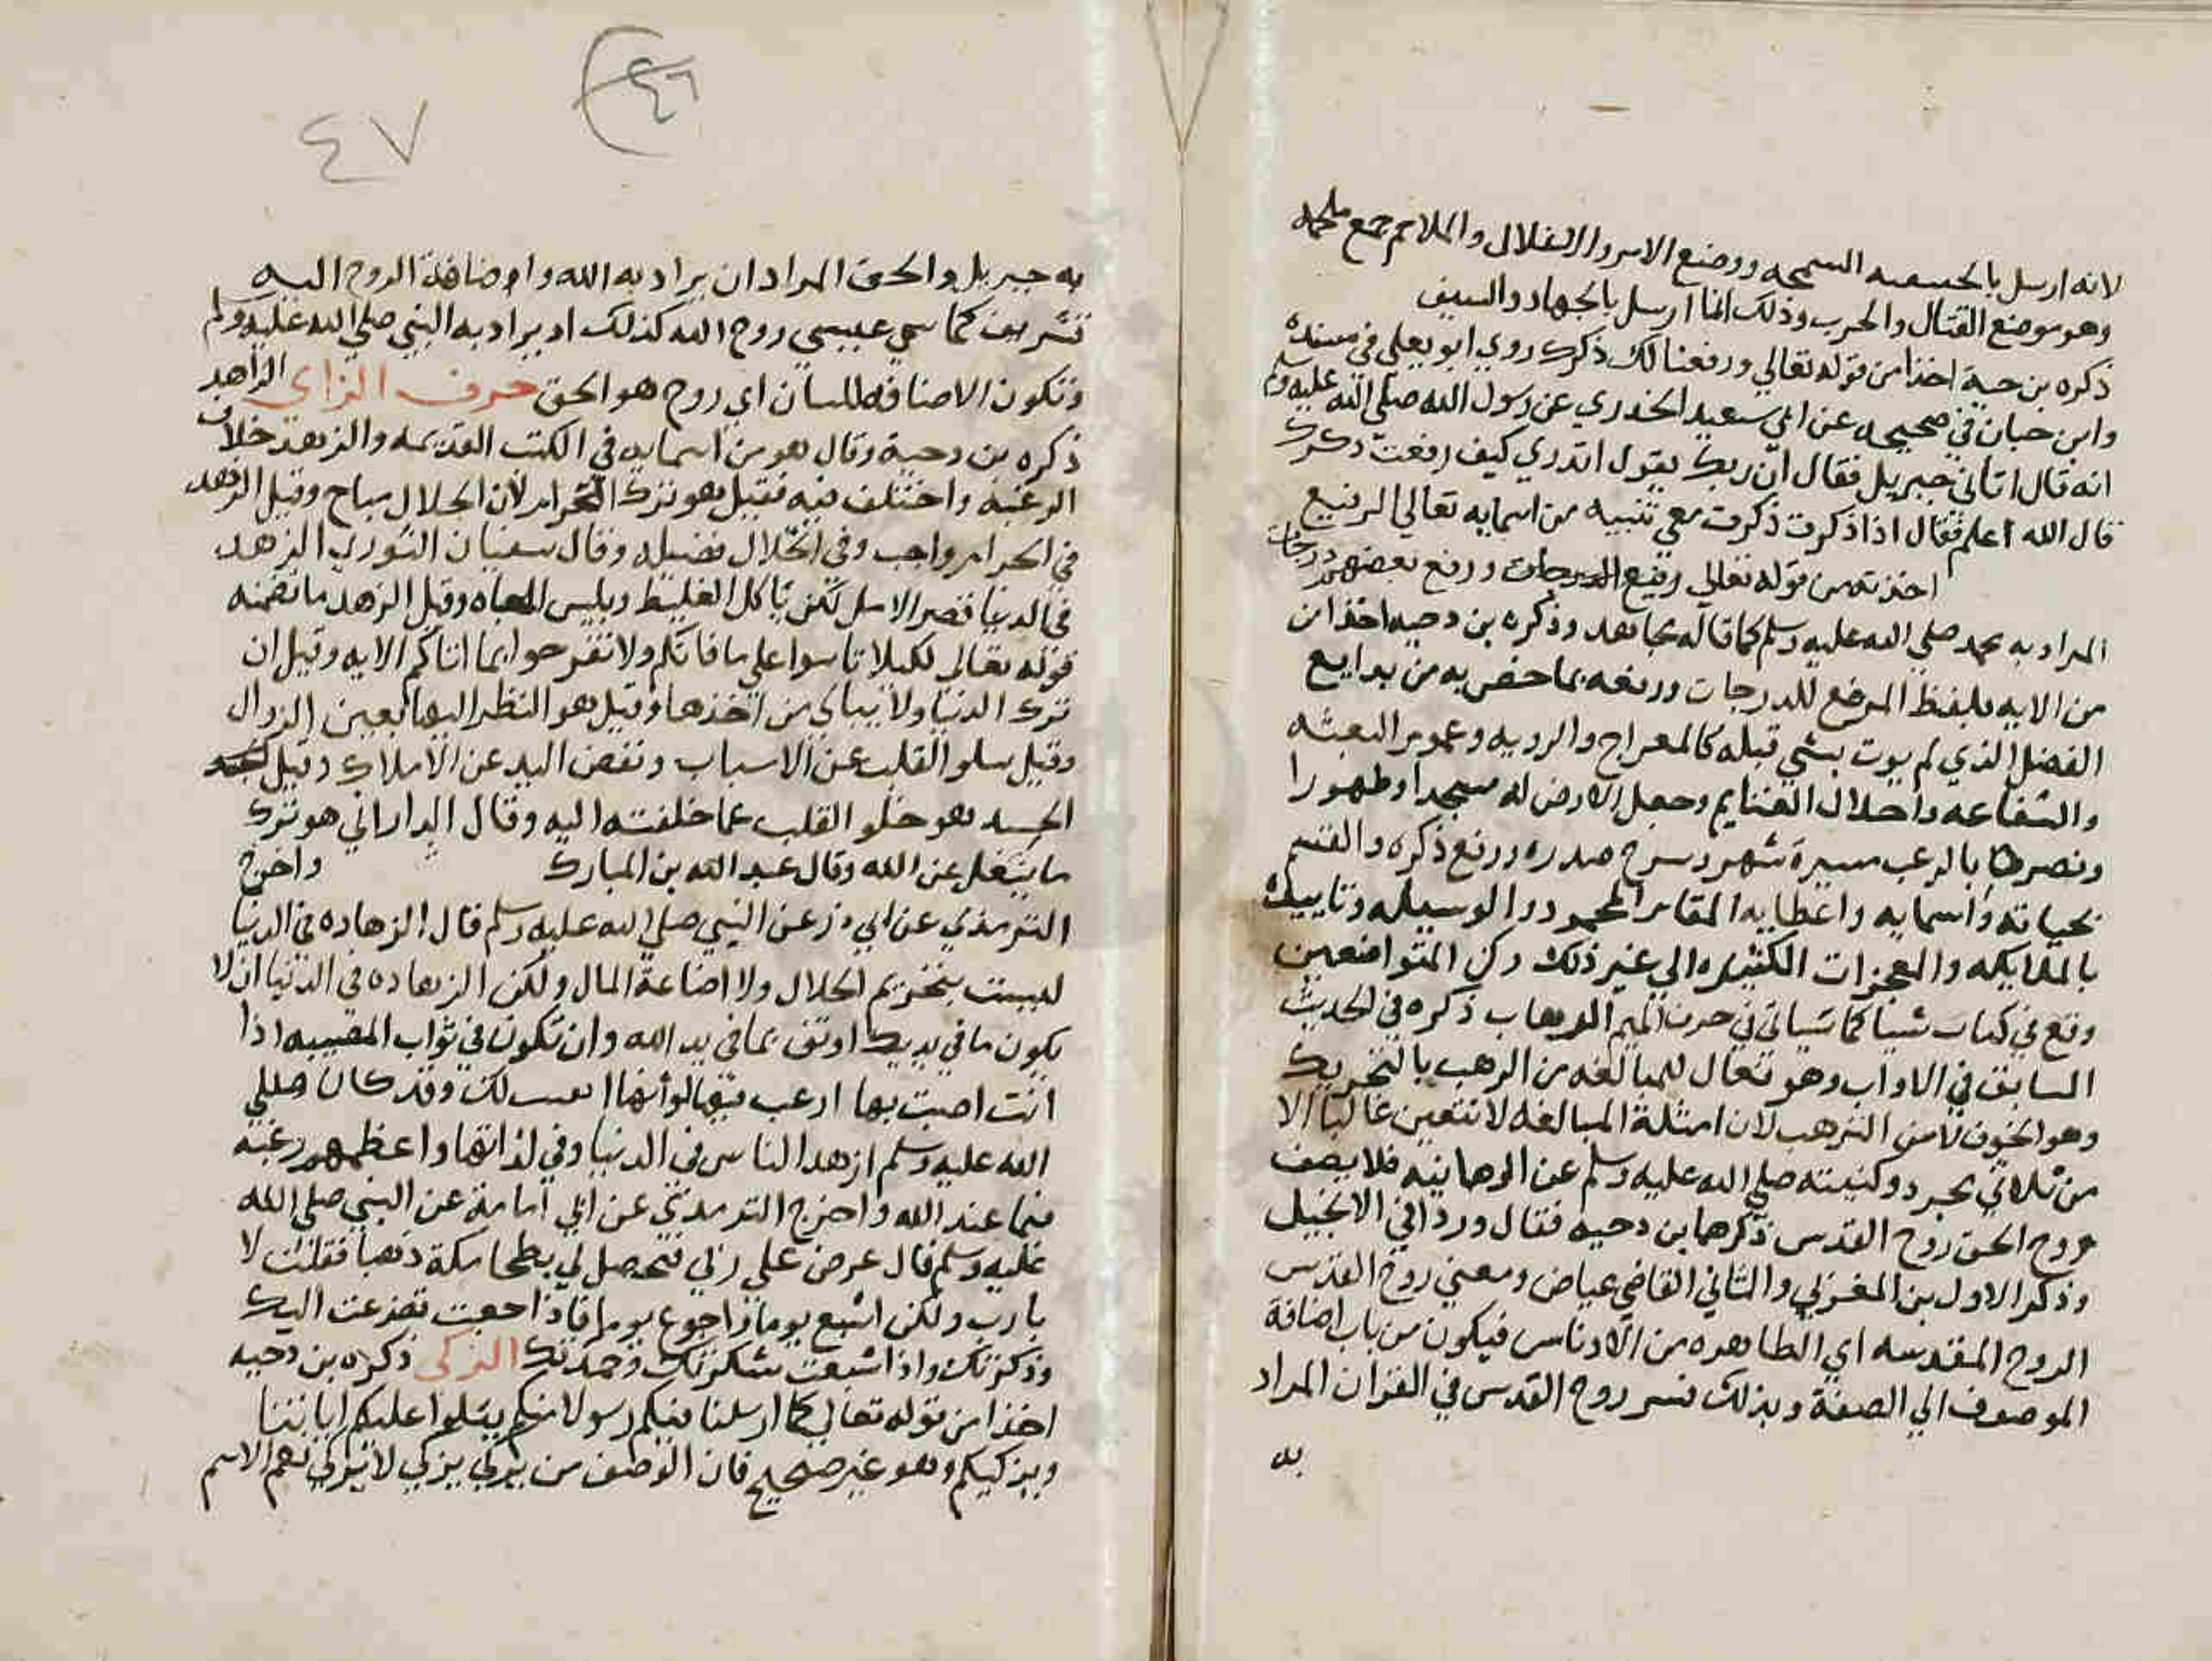 لانه ارسل بالحنيفيه السمحه ووضع الاصر والاغلال والملاحم جمع ملحمه
وهو موضع القتال والحرب وذلك انما ارسل بالجهاد والسيف
ذكره بن حية اخذا من قوله تعالي ورفعنا لك ذكرك روي ابو يعلي في مسنده
وابن حبان في صحيحه عن ابي سعيد الخدري عن رسول الله صلي الله عليه وسلم
انه قال اتاني جبريل فقال ان ربك يقول اتدري كيف رفعت ذكرك
قال الله اعلم فقال اذا ذكرت ذكرت معي تنبيه من اسمايه تعالي الرفيع
اخذته من قوله تعالي رفيع الدرجات ورفع بعضهم درجات
المراد به محمد صلي الله عليه وسلم كما قاله مجاهد وذكره بن دحيه اخذا من
من الايه بلفظ المرفع للدرجات ورفعه بما خص به من بدايع
الفضل الذي لم يوت بشي قبله كالمعراج والرويه وعموم البعثه
والشفاعه واحلال الغنايم وجعل الارض له مسجدا وطهورا
ونصره بالرعب مسيرة شهر وشرح صدره ورفع ذكره والقسم
بحياته واسمايه واعطايه المقام المحمود والوسيله وتاييده
بالملايكه والمعجزات الكثيره الي غير ذلك ركن المتواضعين
وقع في كتاب شيا كما سياتي في حرف الميم الرهاب ذكره في الحديث
السابق في الاواب وهو فعال للمبالغه من الرهب بالتحريك
وهو الخوف لا من الترهب لان امثلة المبالغه لا تتعين غالبا الا
من ثلاثي مجرد وكنيته صلي الله عليه وسلم عن الرهبانيه فلا يصف
روح الحق روح القدس ذكرهما بن دحيه فقال وردا في الانجيل
وذكر الاول بن المغزلي والثاني القاضي عياض ومعني روح القدس
الروح المقدسه اي الطاهره من الادناس فيكون من باب اضافة
الموصوف الي الصفة وبذلك فسر روح القدس في القران المراد
به
٤٦
٤٧
به جبريل والحق المراد ان يراد به الله واضافة الروح اليه
تشريف كما سمي عيسي روح الله كذلك او يراد به النبي صلي الله عليه وسلم
وتكون الاضافه للبيان اي روح هو الحق حرف الزاي الزاهد
ذكره بن دحية وقال هو من اسمايه في الكتب القديمه والزهد خلاف
الرغبه واختلف فيه فقيل هو ترك الحرام لان الحلال مباح وقيل الزهد
في الحرام واجب وفي الحلال فضيله وقال سفيان الثوري الزهد
في الدنيا قصر الامل لكن ياكل الغليظ ويلبس العباه وقيل الزهد ما تضمنه
قوله تعالي لكيلا تاسوا علي ما فاتكم ولا تفرحوا بما اتاكم الايه وقيل ان
تترك الدنيا ولا تبالي من اخذها وقيل هو النظر اليها بعين الزوال
وقيل سلو القلب عن الاسباب ونفض اليد عن الاملاك وقيل
الجنيد هو خلو القلب عما خلفته اليه وقال الداراني هو ترك
ما يشغل عن الله وقال عبد الله بن المبارك واخرج
الترمذي عن ابي ذر عن النبي صلي الله عليه وسلم قال الزهاده في الدنيا
ليست بتحريم الحلال ولا اضاعة المال ولكن الزهاده في الدنيا ان لا
يكون ما في يديك اوثق بما في يد الله وان تكون في ثواب المصيبه اذا
انت اصبت بها ارغب فيها لو انها لك وقد كان صلي
الله عليه وسلم ازهد الناس في الدنيا وفي لذاتها واعظمهم رغبه
فيما عند الله واخرج الترمذي عن ابي امامة عن النبي صلي الله
عليه وسلم قال عرض علي ربي فتحصل لي بطحا مكة ذهبا فقلت لا
يارب ولكن اشبع يوما واجوع يوما فاذا جعت تضرعت اليك
وذكرتك واذا شبعت شكرتك وحمدتك الزكي ذكره بن دحيه
اخذا من قوله تعالي كما ارسلنا فيكم رسولا منكم يتلوا عليكم اياتنا
ويزكيكم وهو غير صحيح فان الوصف من يزكي يزكي لا يزكي نعم الاسم